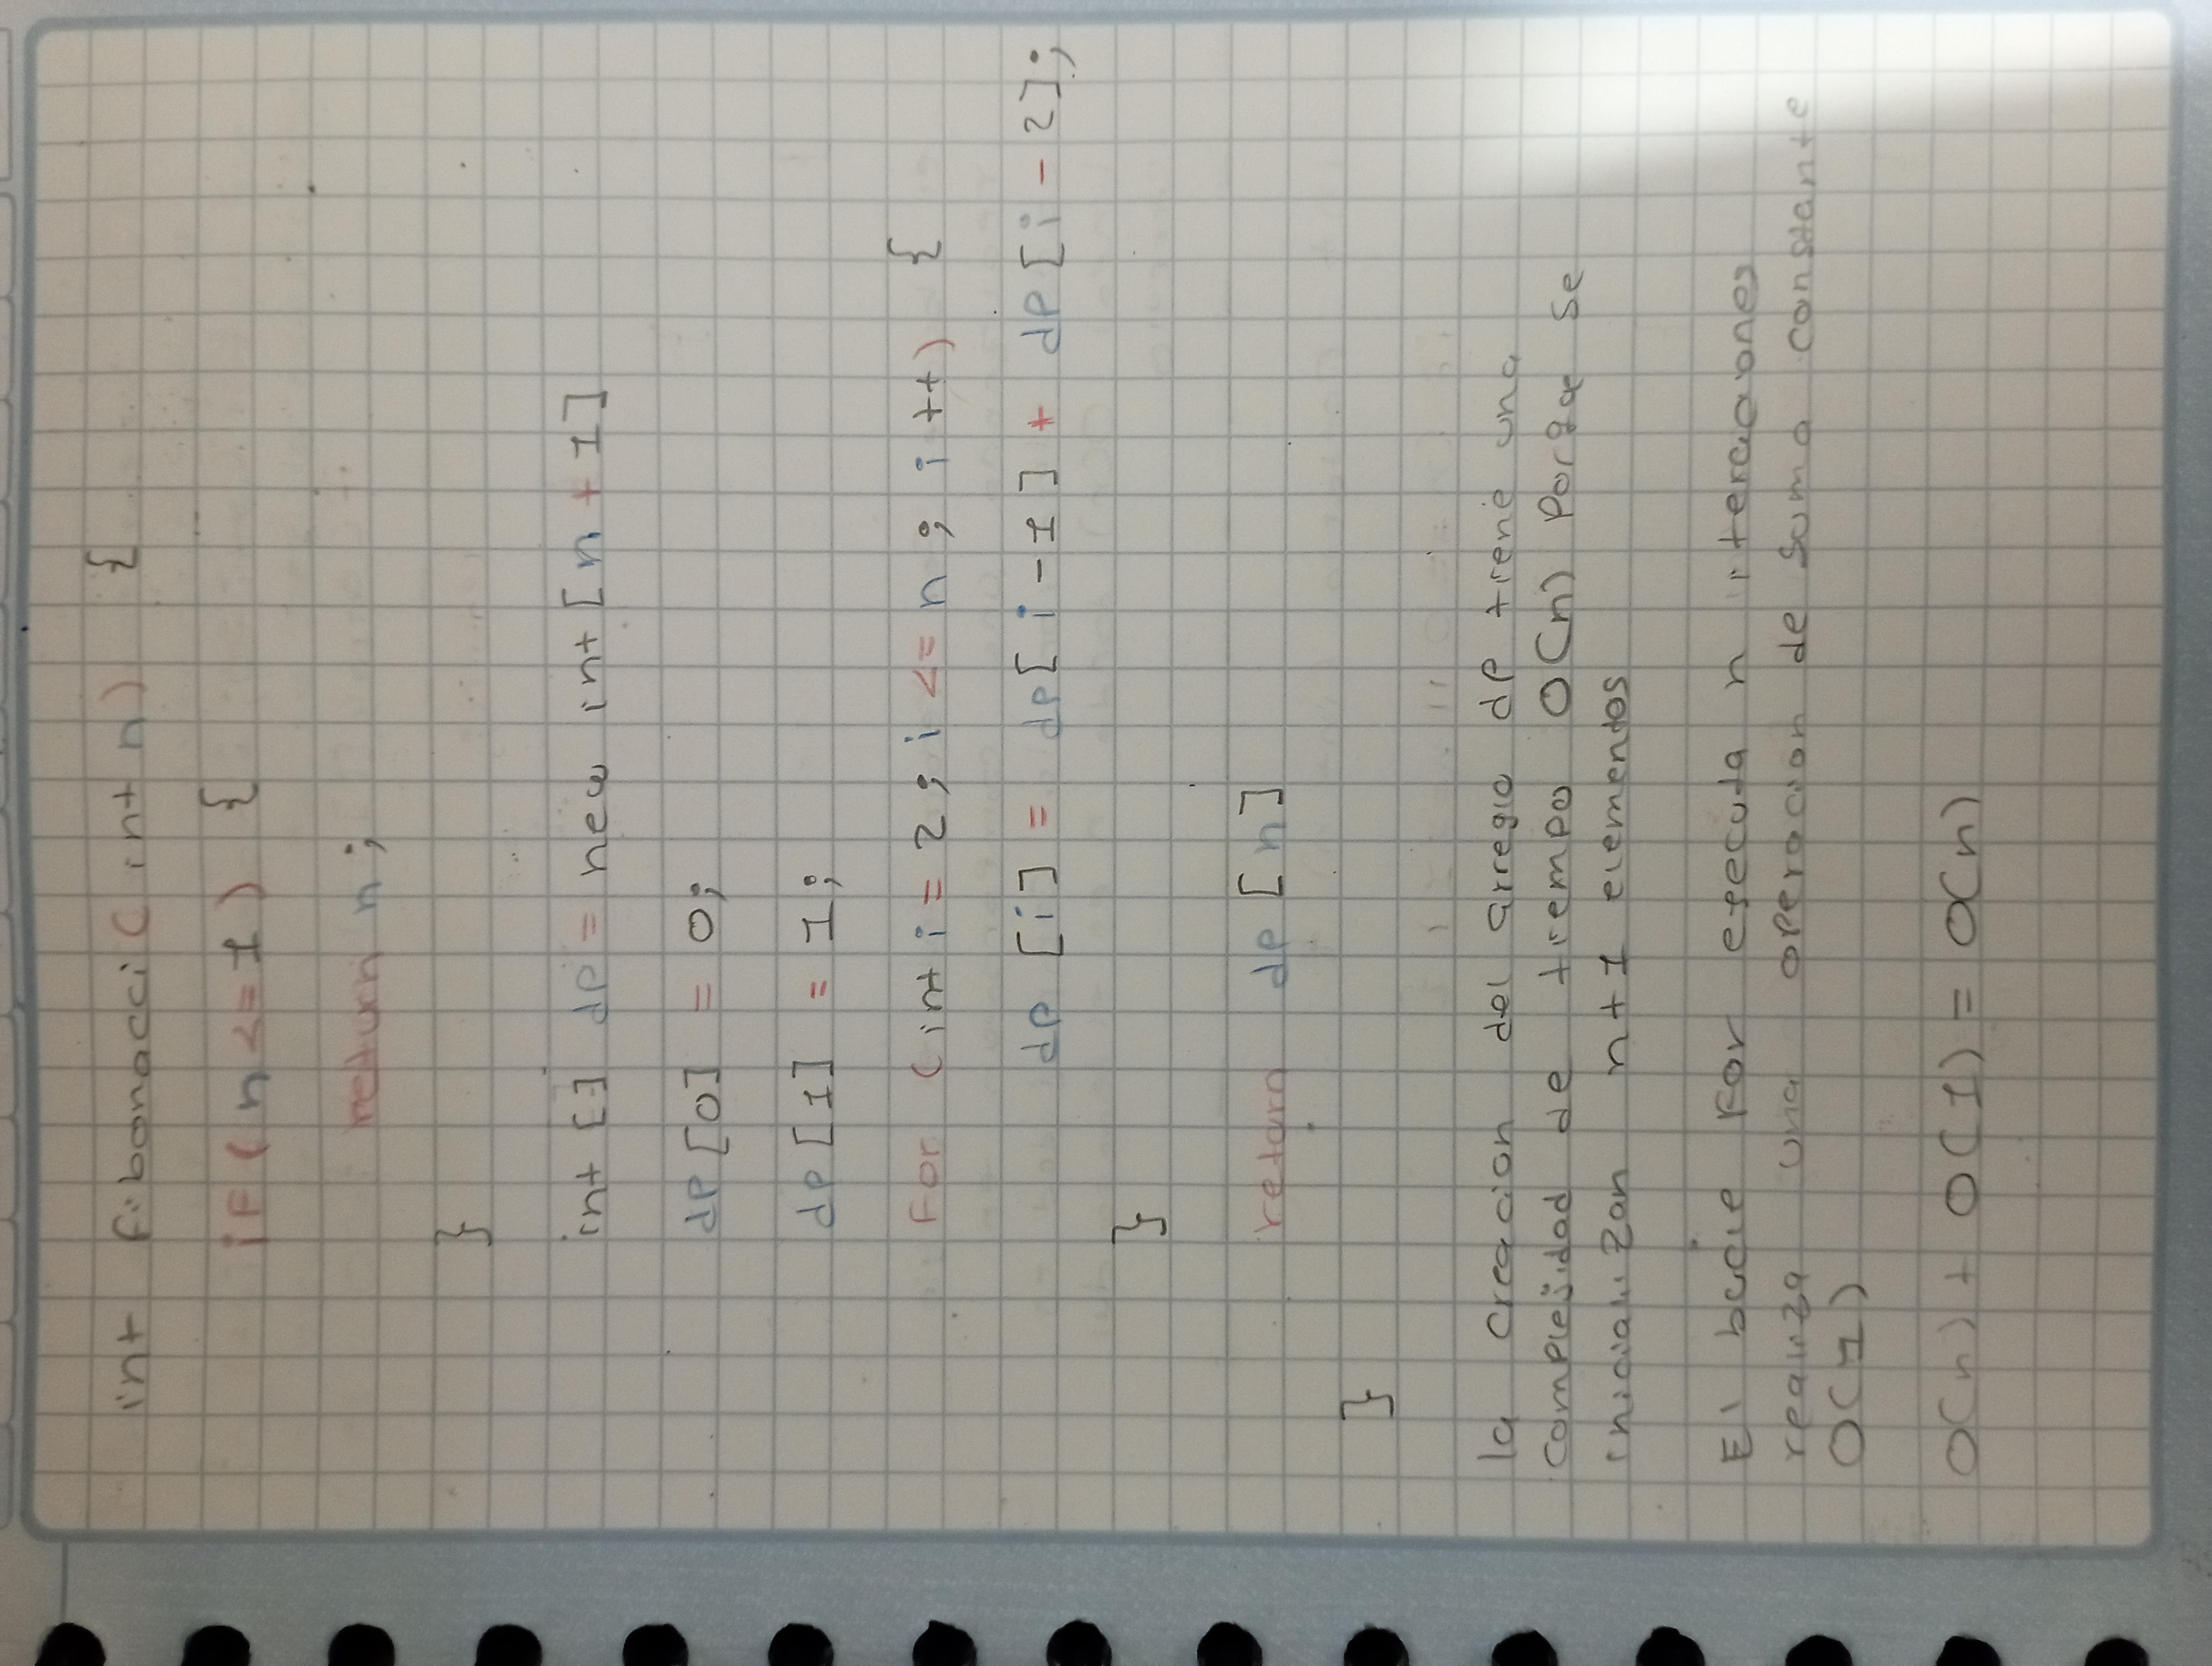 int fibonacci( int n) {
if ( n <= 1 ) {
return n ;
}
int [] dp = new int [ n + 1 ]
dp [0] = 0;
dp [1] = 1;
For (int i = 2 ; i <= n ; i ++) {
dp [i] = dp[ i - 1 ] + dp [i - 2];
}
return dp [n]
}
la creacion del arreglo dp tiene una
complejidad de tiempo O(n) porque se
inicializan n+1 elementos
El bucle for ejecuta n iteraciones
realiza una operacion de suma constante
O(1)
O(n) + O(1) = O(n)